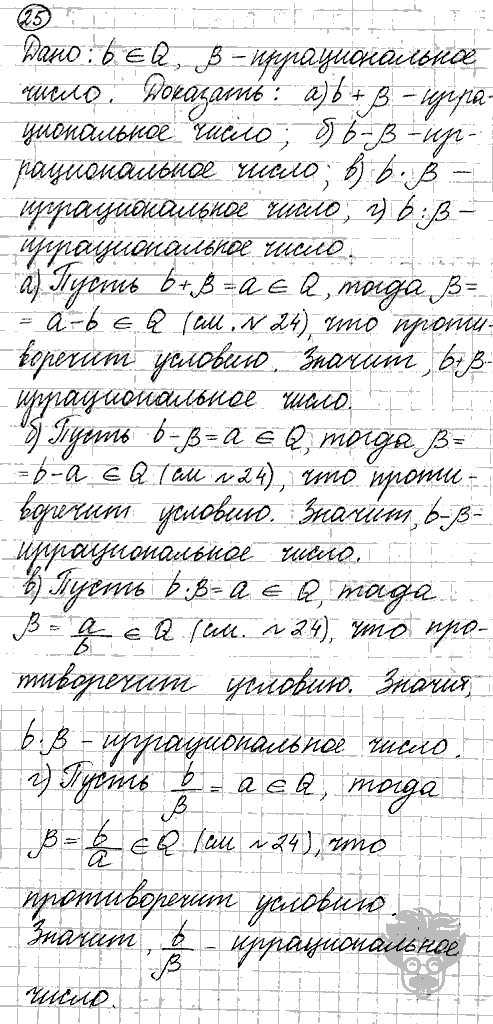 25
Дано: b ∈ Q, β – иррациональное
число. Доказать: а) b + β – ирра-
циональное число; б) b – β – ир-
рациональное число; в) b · β –
иррациональное число, г) b : β –
иррациональное число.
а) Пусть b + β = a ∈ Q, тогда β =
= a – b ∈ Q (см. №24), что проти-
воречит условию. Значит, b + β –
иррациональное число.
б) Пусть b – β = a ∈ Q, тогда β =
= b – a ∈ Q (см №24), что проти-
воречит условию. Значит, b – β –
иррациональное число.
в) Пусть b · β = a ∈ Q, тогда
β = a/b ∈ Q (см. №24), что про-
тиворечит условию. Значит,
b · β – иррациональное число.
г) Пусть b/β = a ∈ Q, тогда
β = b/a ∈ Q (см №24), что
противоречит условию.
Значит, b/β – иррациональное
число.